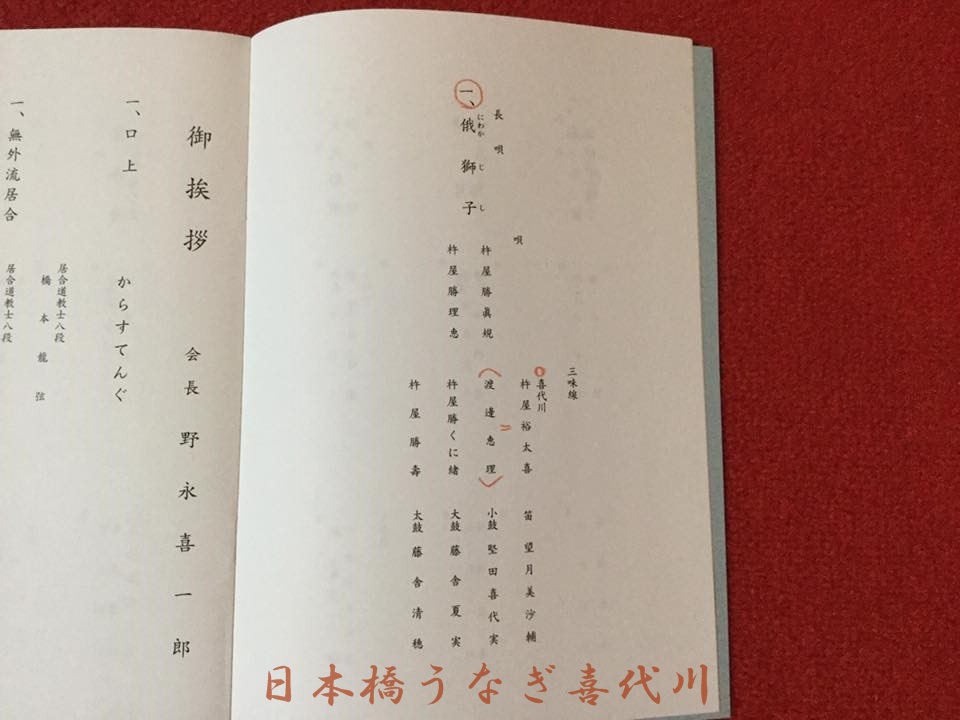 長唄
にわかじし
一、俄獅子
唄
杵屋勝眞規
杵屋勝理恵
三味線
喜代川
杵屋裕太喜
渡邊恵理
杵屋勝くに緒
杵屋勝壽
笛 望月美沙輔
小鼓 堅田喜代実
大鼓 藤舎夏実
太鼓 藤舎清穂
御挨拶 会長 野永喜一郎
一、口上 からすてんぐ
居合道教士八段
橋本龍弦
一、無外流居合
居合道教士八段
日本橋うなぎ喜代川